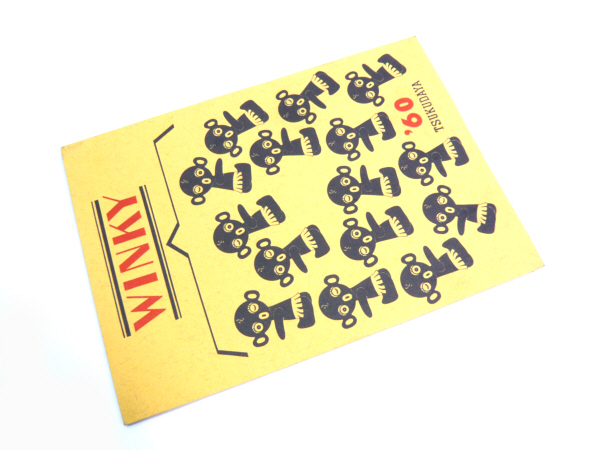 WINKY
'60
TSUKUDAYA